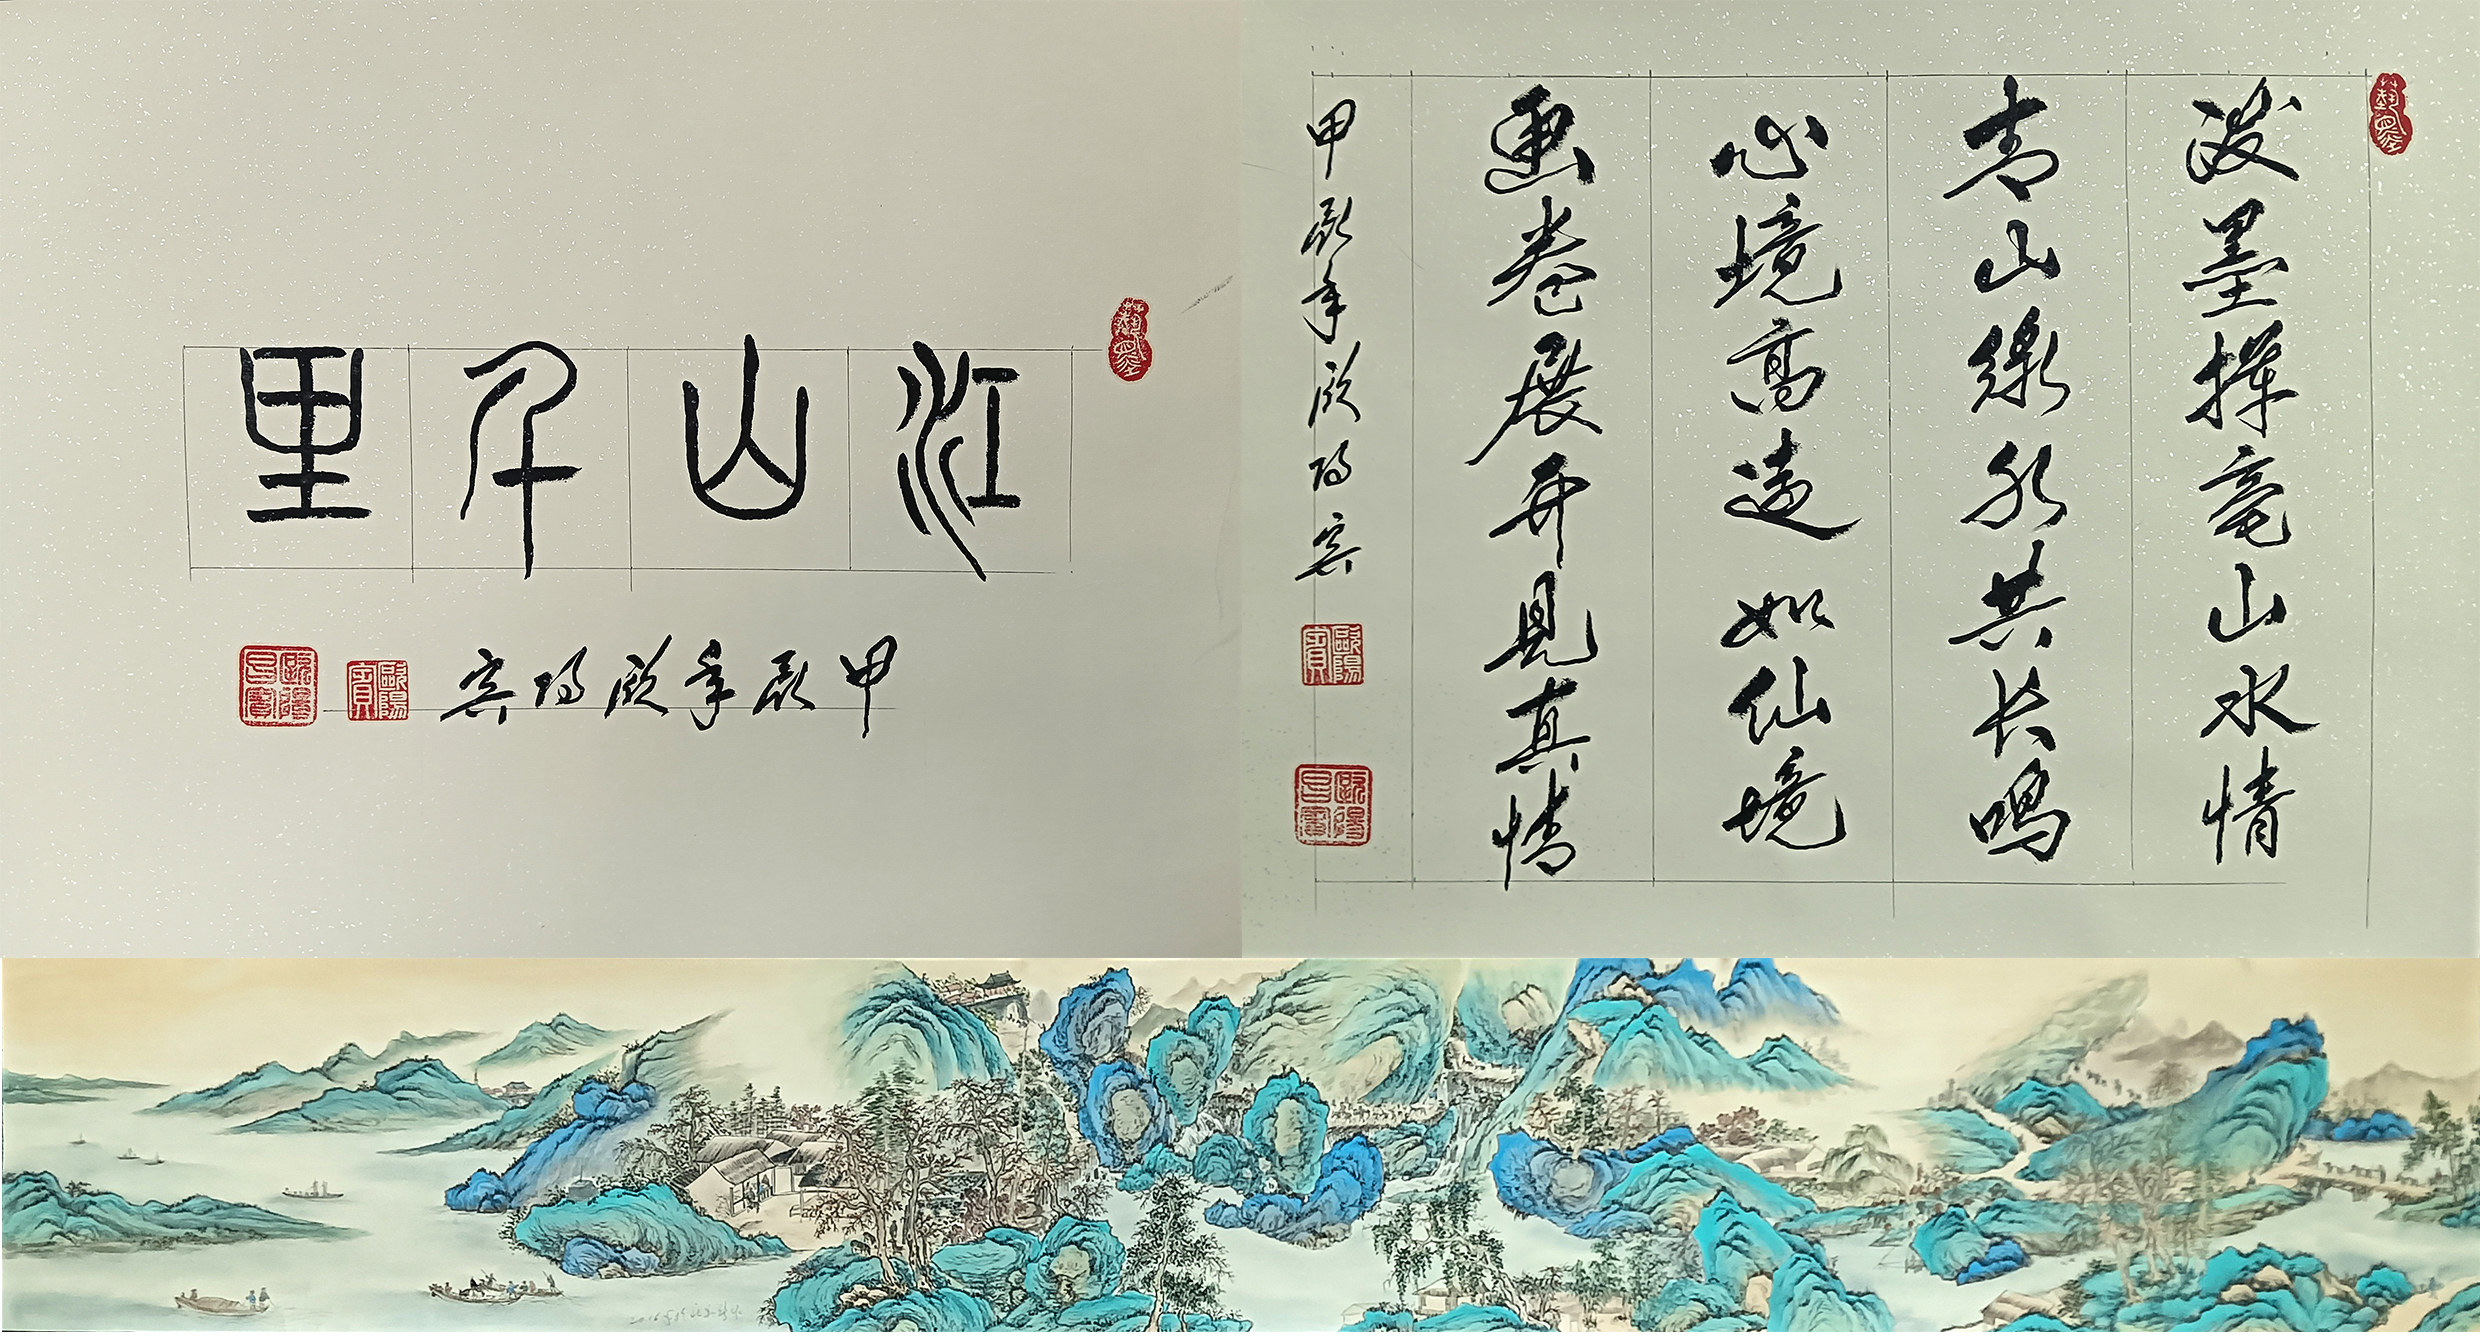 江山千里
甲辰年欧阳宾
歐陽賓
泼墨挥毫山水情
青山绿水共长鸣
心境高远如仙境
画卷展开见真情
甲辰年欧阳宾
歐陽賓